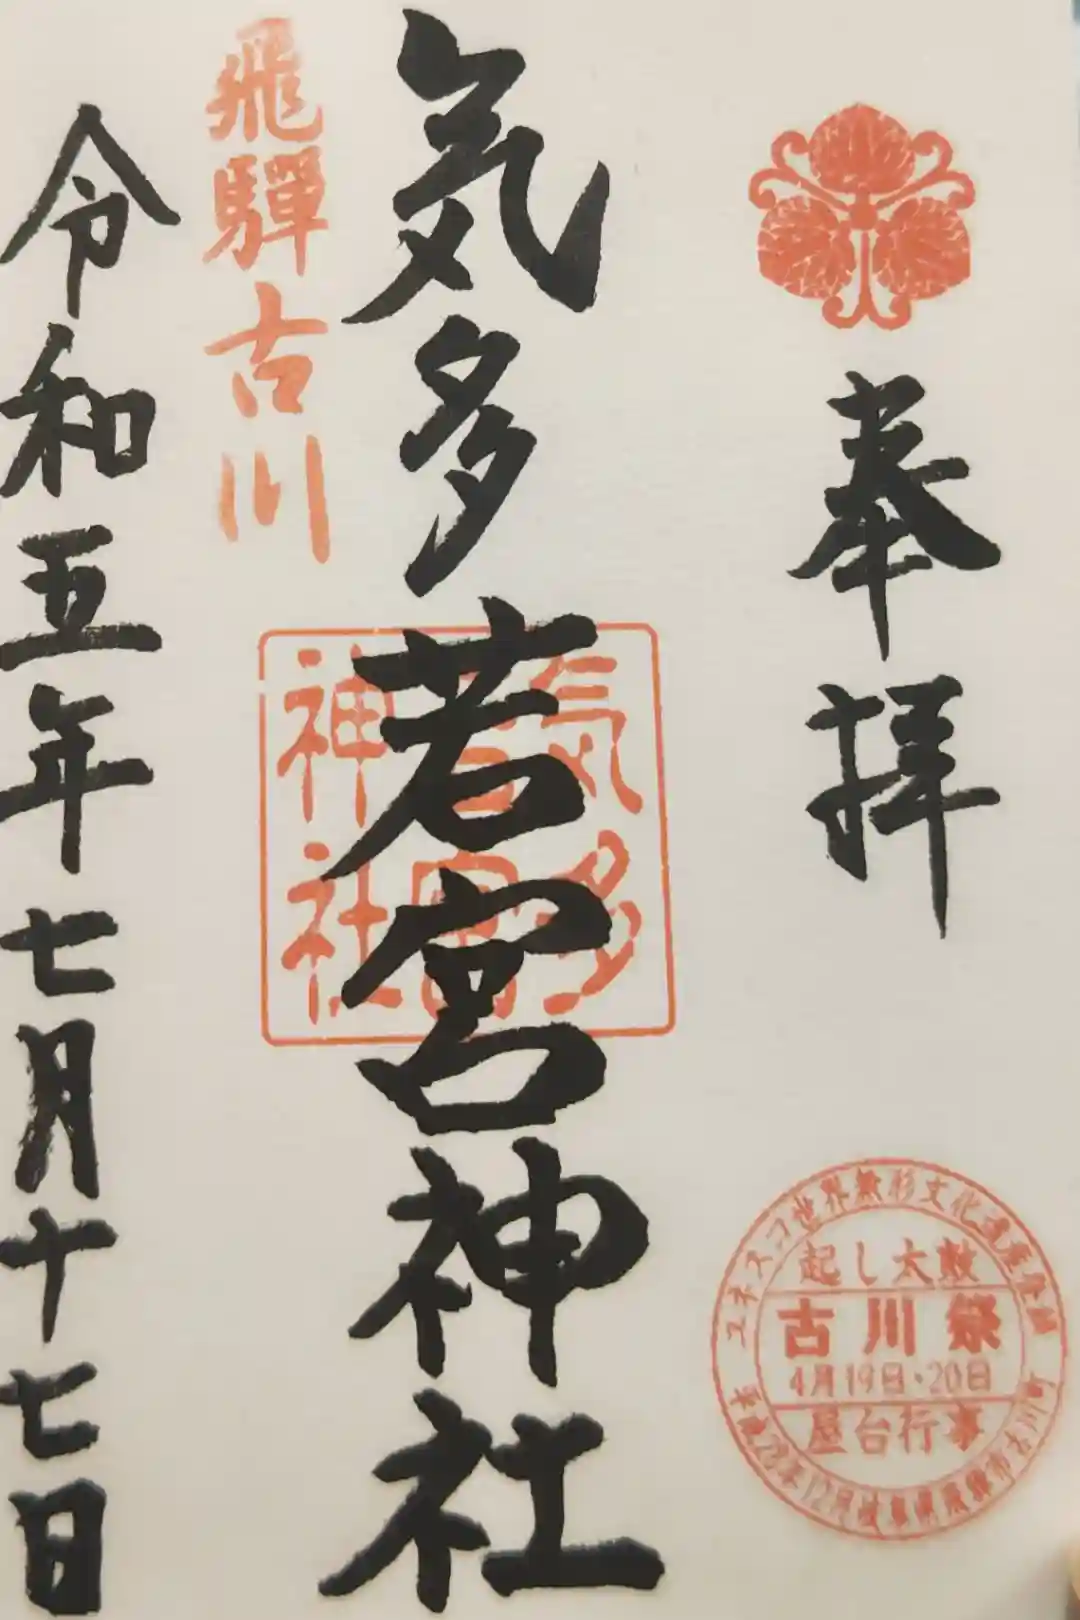 奉拝
気多若宮神社
飛騨古川
令和五年七月十七日
気多
若宮
神社
ユネスコ世界無形文化遺産登録
起し太鼓
古川祭
4月19日・20日
屋台行事
28年12月岐阜県飛騨市古川町